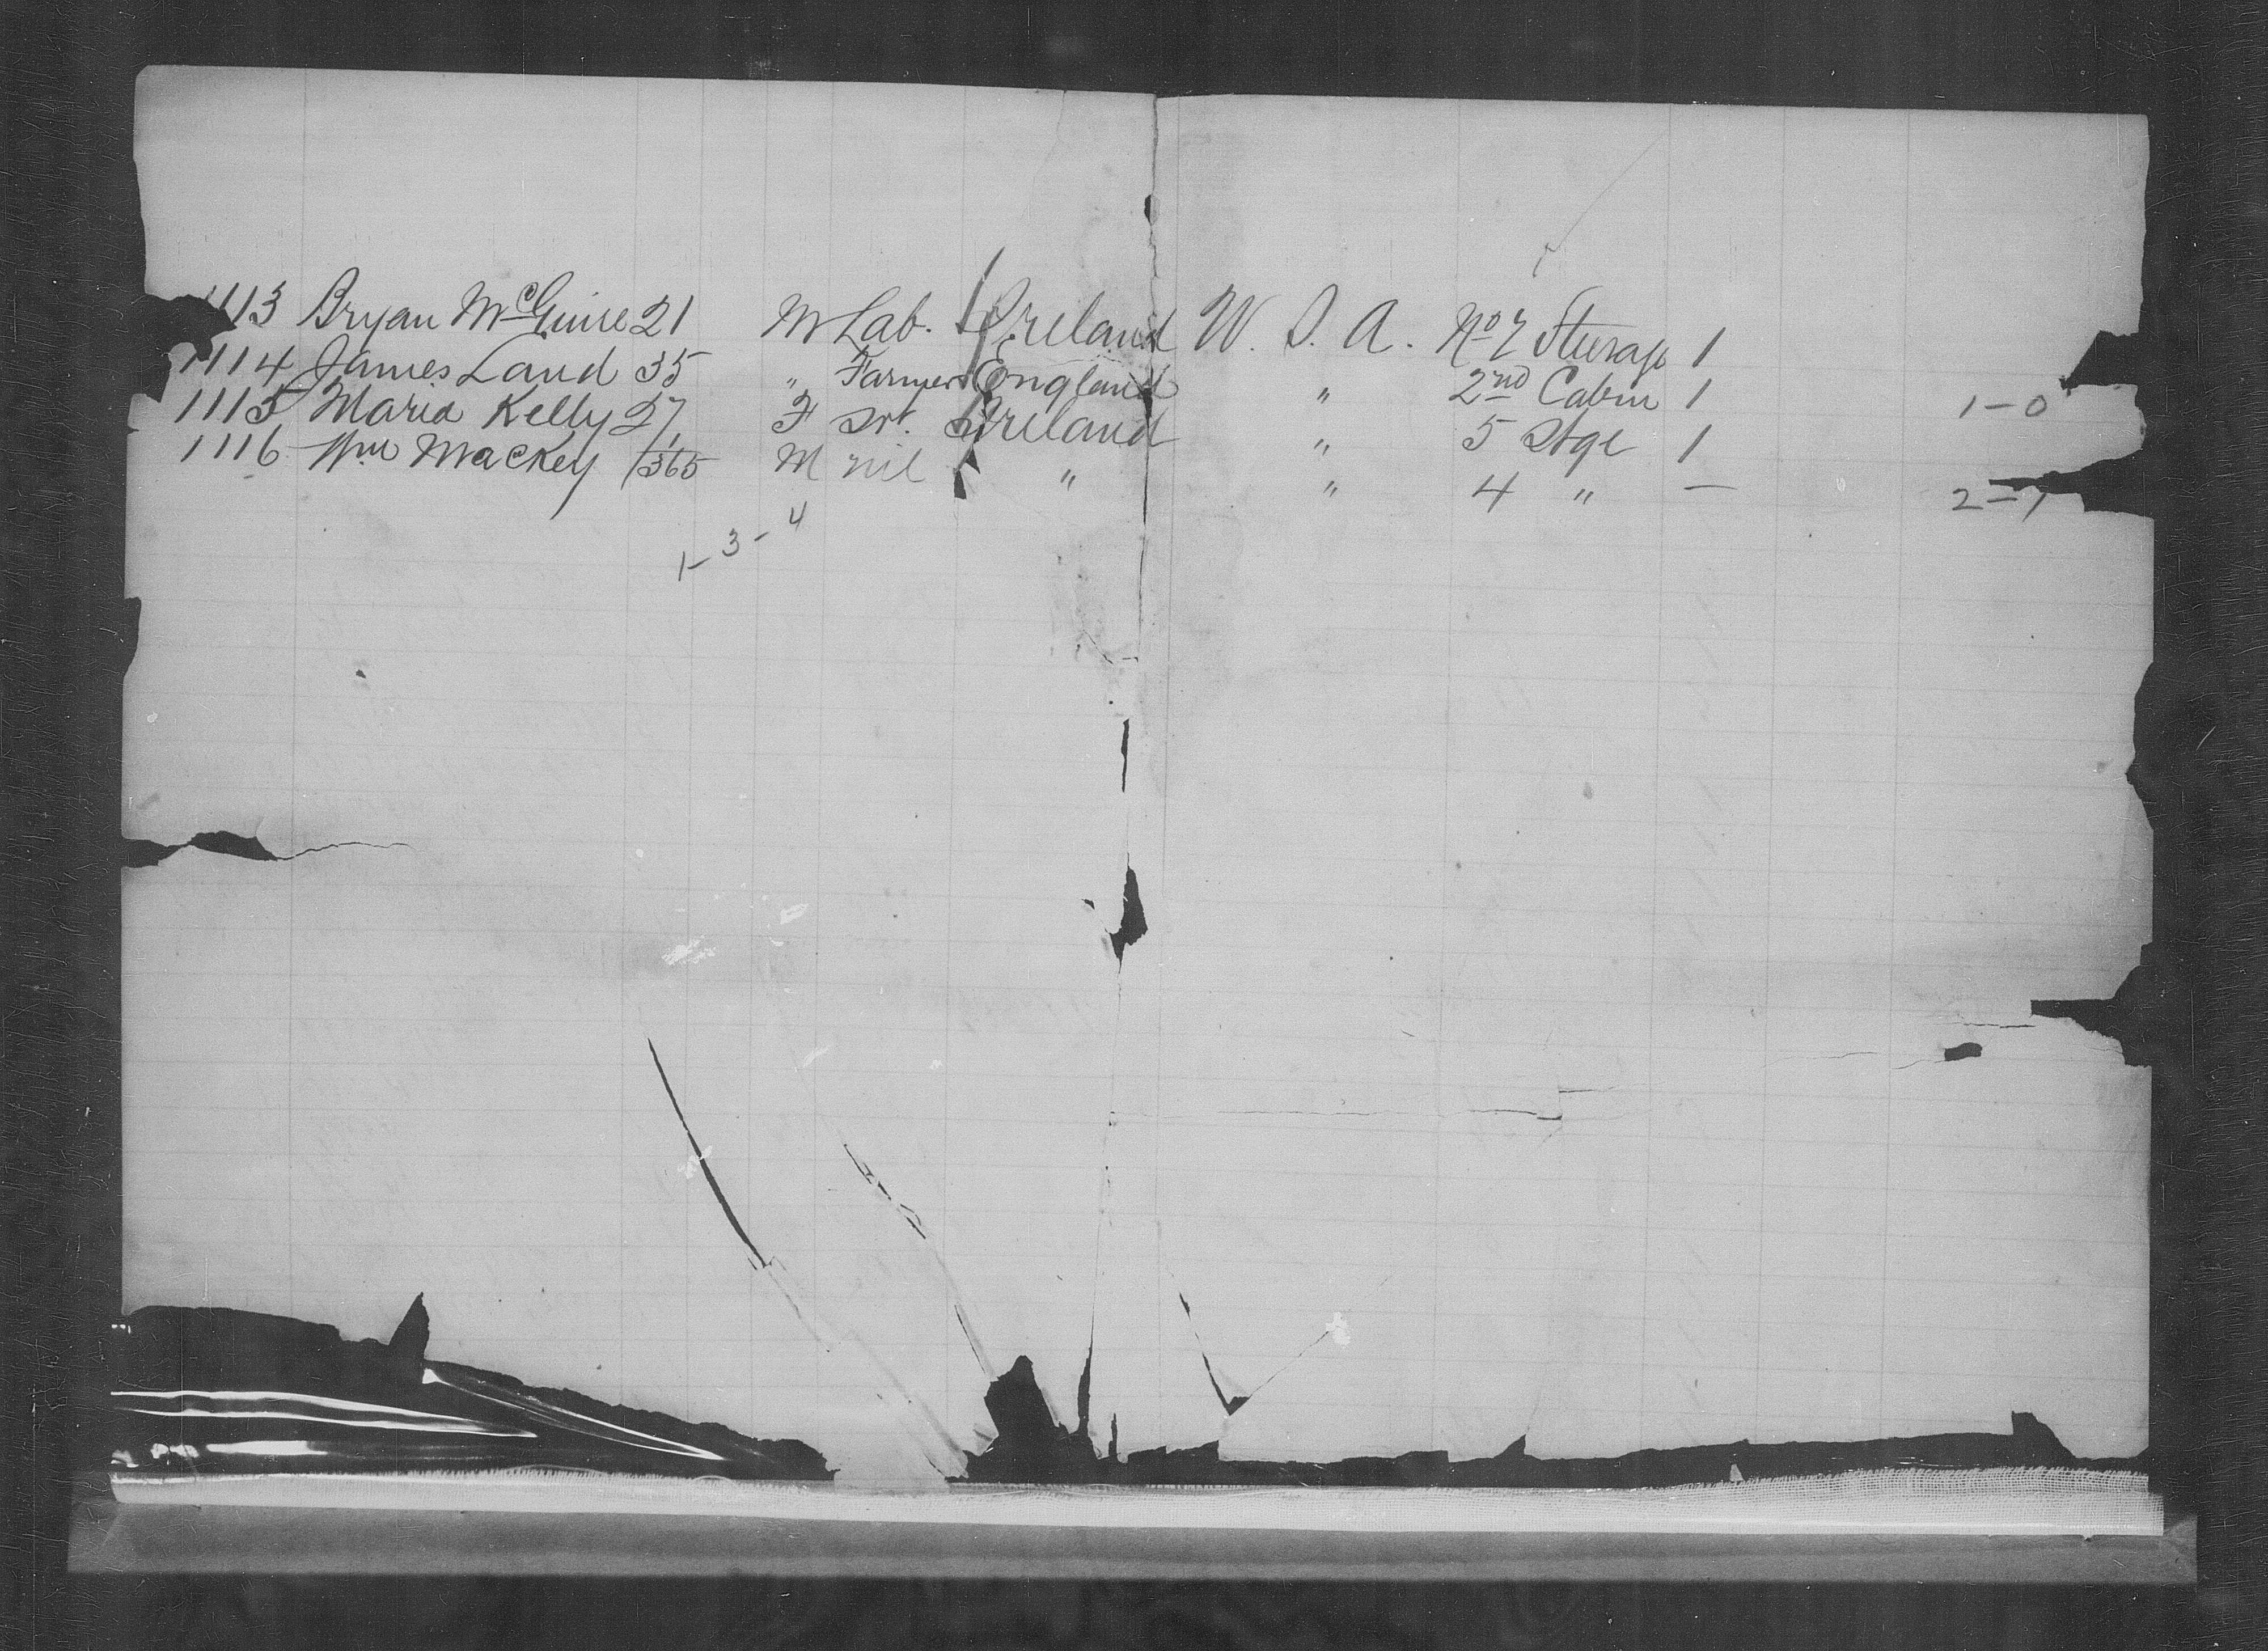 1113 Bryan McGuire 21 M Lab. Ireland U. S. A. No 7 Steerage 1
1114 James Land 35 " Farmer England " 2nd Cabin 1 1-0
1115 Maria Kelly 27 F Svt. Ireland " 5 Stge 1
1116 Wm Mackey 1/365 M nil " " 4 " — 2=7
1-3-4